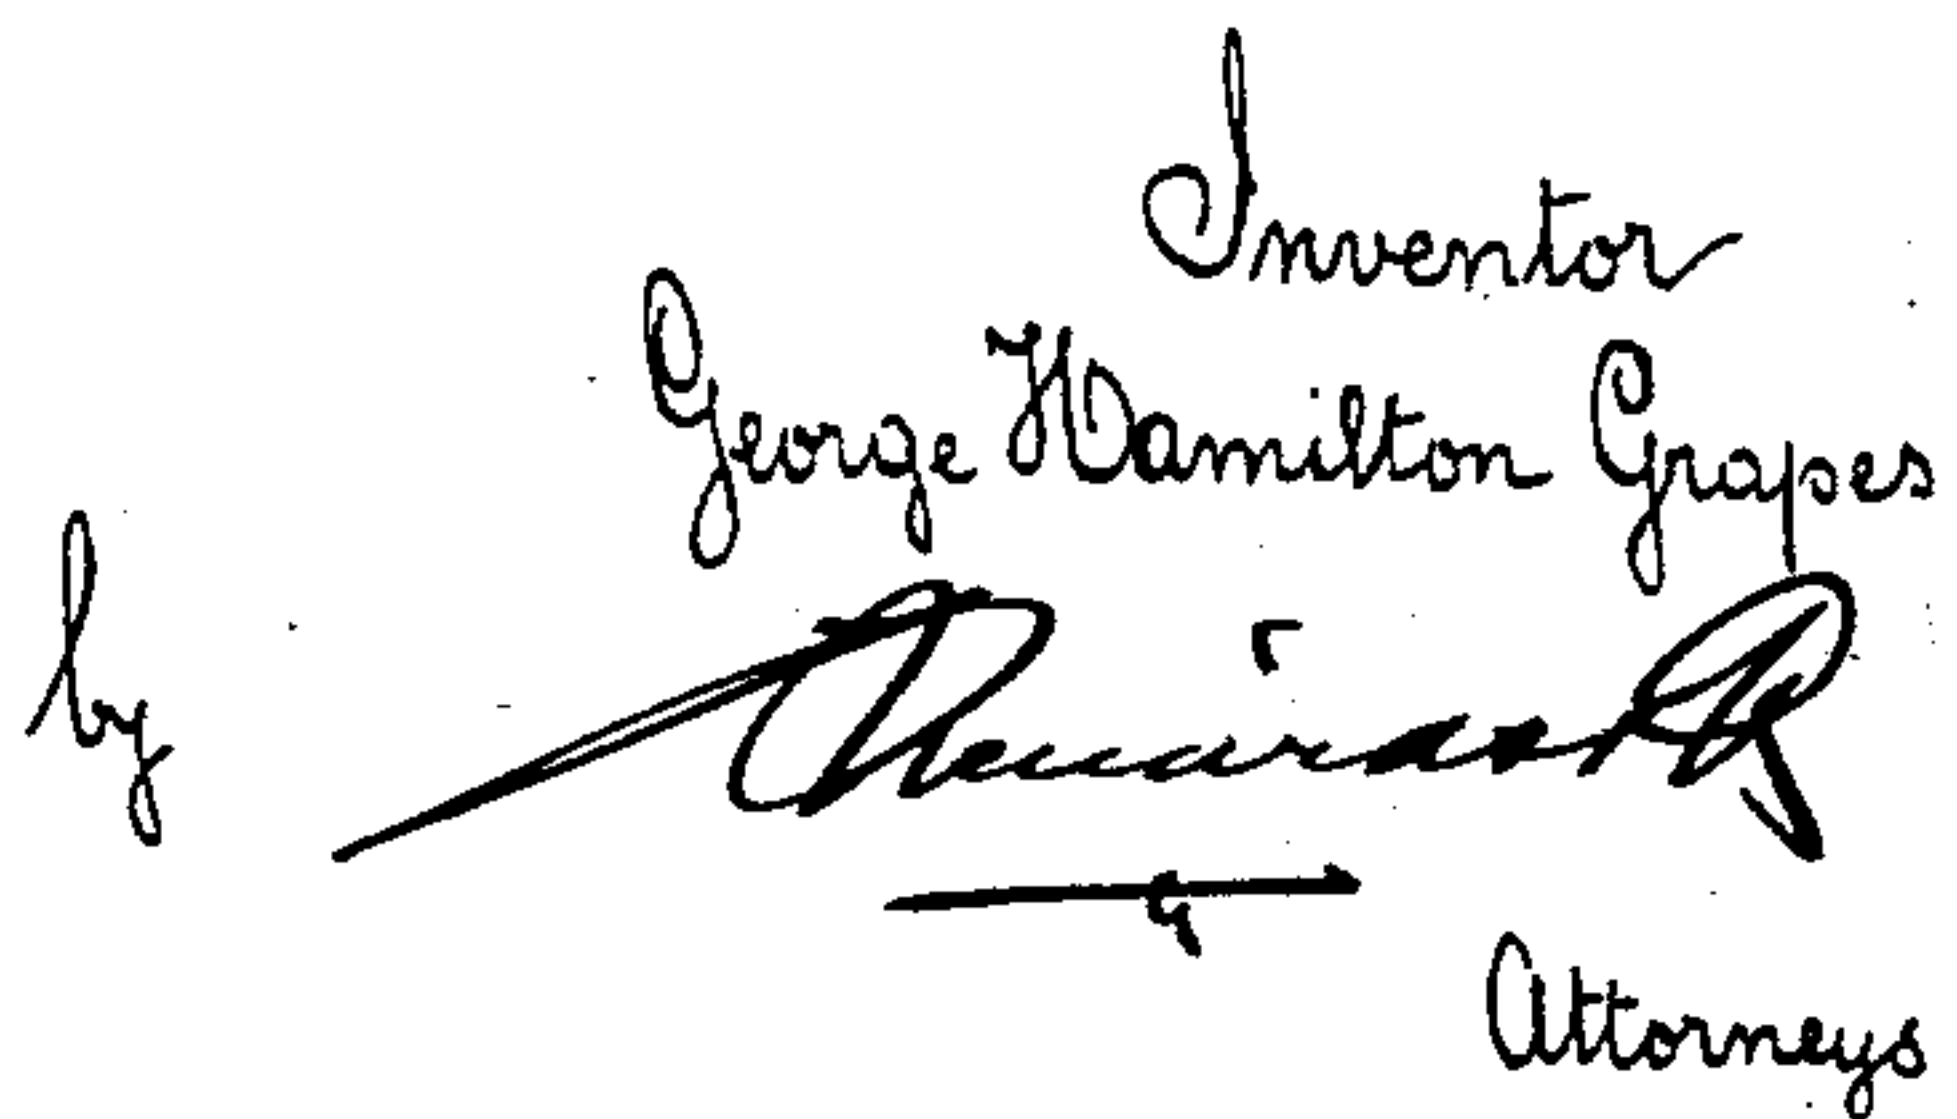 Inventor
George Hamilton Grapes
by
Attorneys